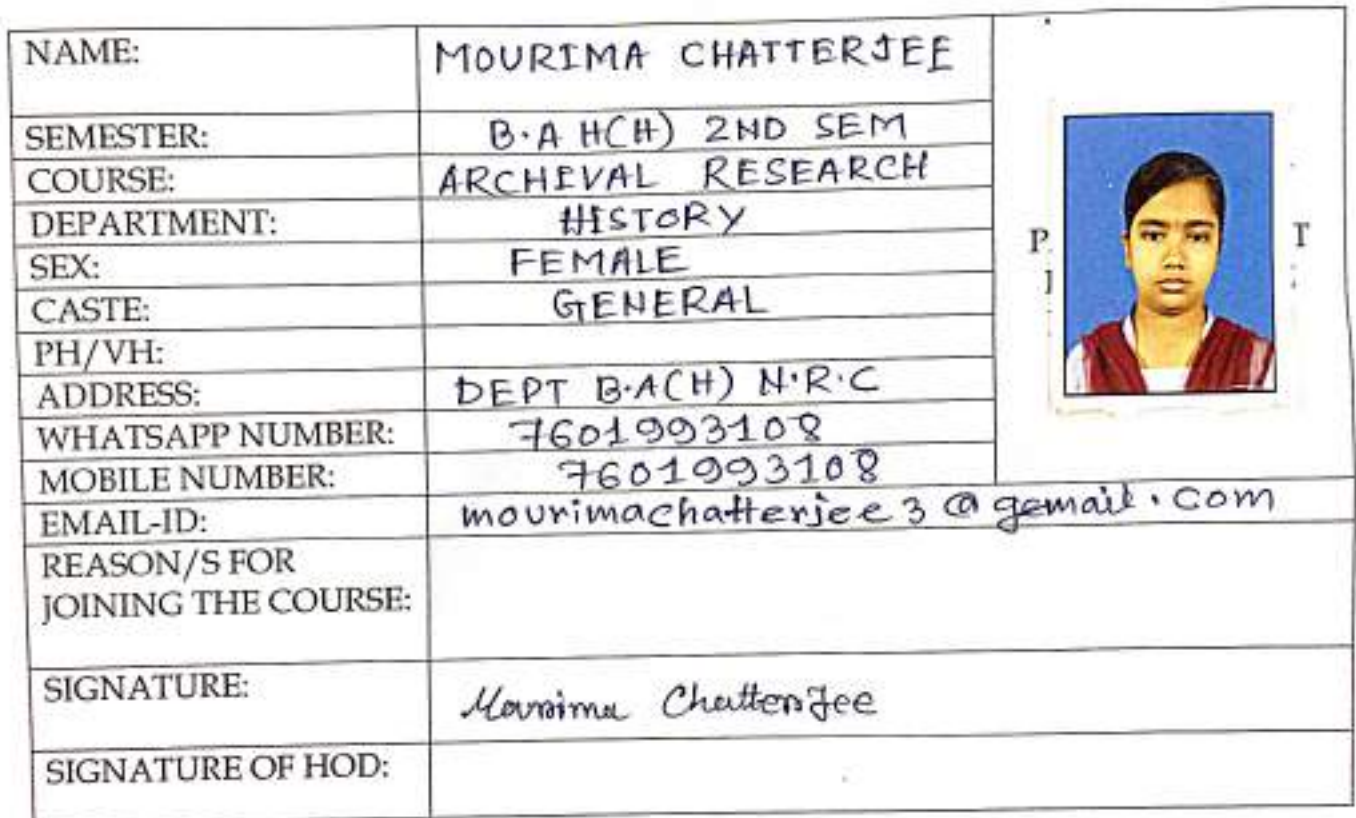 NAME: MOURIMA CHATTERJEE
SEMESTER: B.A H(H) 2ND SEM
COURSE: ARCHIVAL RESEARCH
DEPARTMENT: HISTORY
SEX: FEMALE
CASTE: GENERAL
PH/VH:
ADDRESS: DEPT B.A(H) N.R.C
WHATSAPP NUMBER: 7601993108
MOBILE NUMBER: 7601993108
EMAIL-ID: mourimachatterjee3@gemail.com
REASON/S FOR
JOINING THE COURSE:
SIGNATURE: Mourima Chatterjee
SIGNATURE OF HOD: